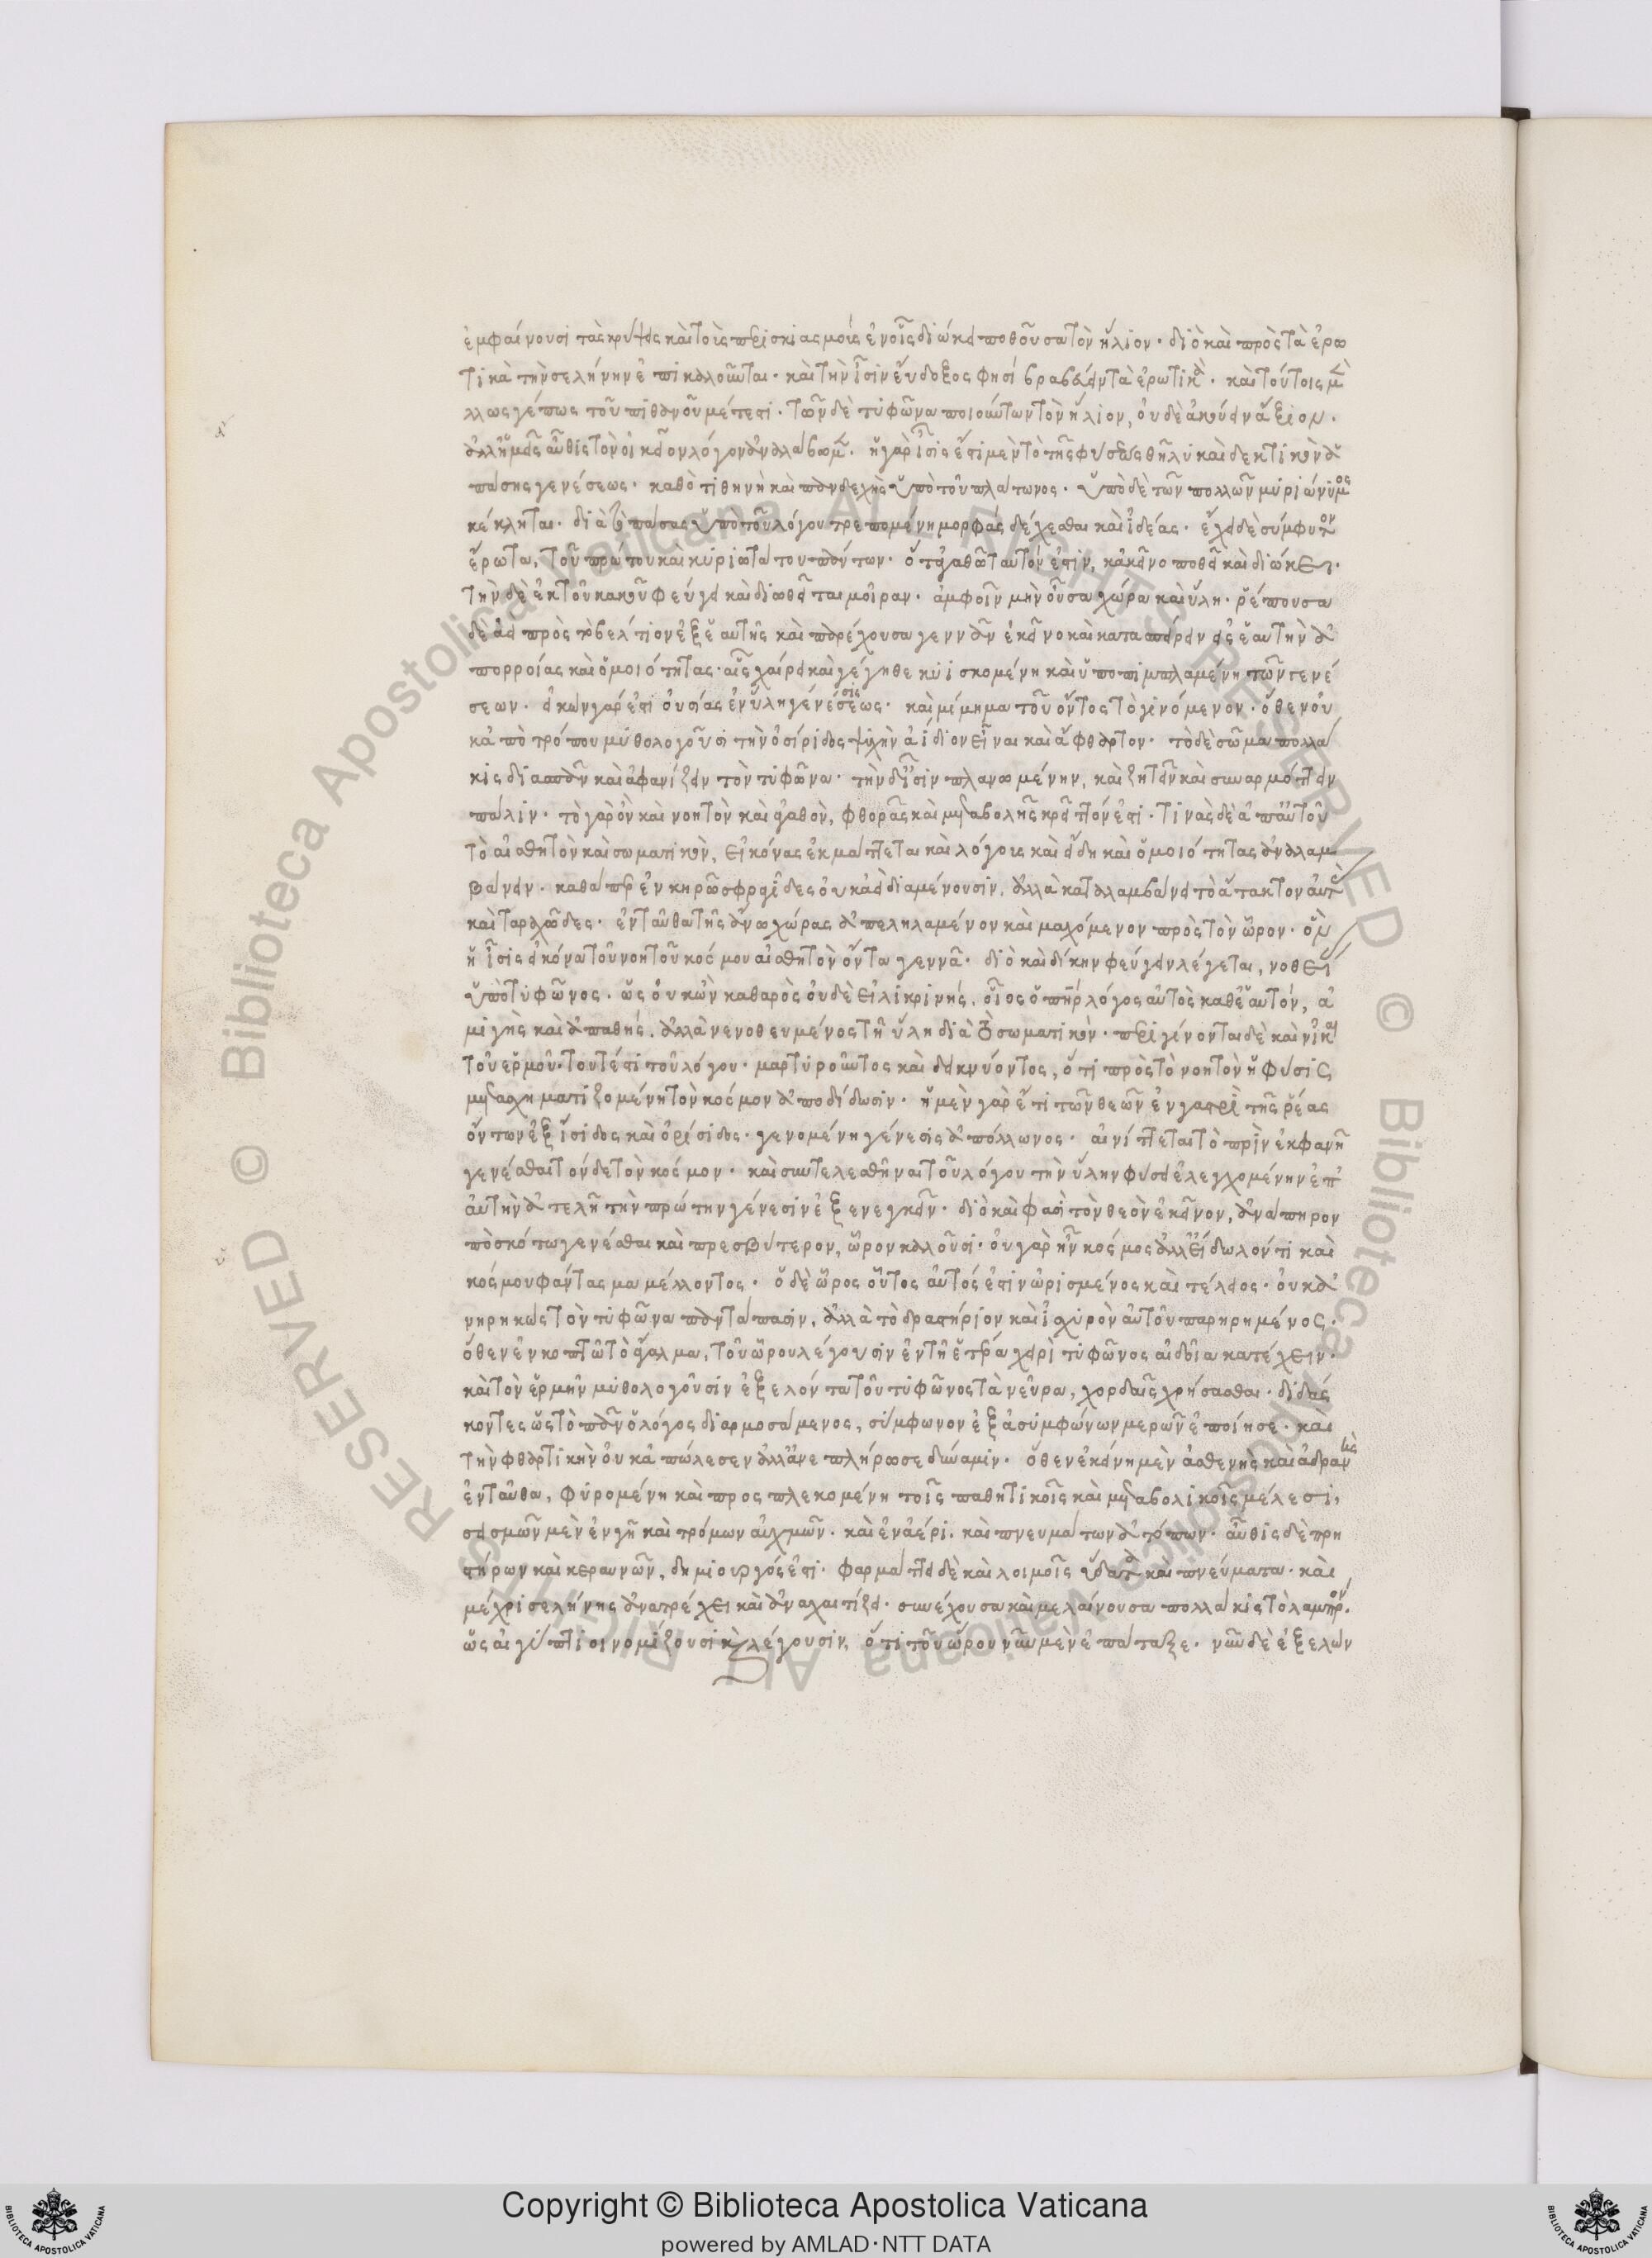 ἐμφαίνουσι τὰς κρύψεις καὶ τοὺς περισκιασμοὺς ἐν οἷς διώκει ποθοῦσα τὸν ἥλιον· διὸ καὶ πρὸς τὰ ἐρω
τικὰ τὴν σελήνην ἐπικαλοῦνται· καὶ τὴν ἶσιν εὔδοξος φησὶ βραβεύειν τὰ ἐρωτικά· καὶ τούτοις μὲν
ἄλλως γέ πως τοῦ πιθανοῦ μέτεστι· τῶν δὲ τυφῶνα ποιούντων τὸν ἥλιον, οὐδὲ ἀκούειν ἄξιον.
ἀλλ' ἡμεῖς αὖθις τὸν οἰκεῖον λόγον ἀναλάβωμεν· ἡ γὰρ ἶσις ἐστὶ μὲν τὸ τῆς φύσεως θῆλυ καὶ δεκτικὸν ἁ
πάσης γενέσεως· καθὸ τιθηνὴ καὶ πανδεχὴς ὑπὸ τοῦ πλάτωνος· ὑπὸ δὲ τῶν πολλῶν μυριώνυμος
κέκληται· διὰ τὸ πάσας ὑπὸ τοῦ λόγου τρεπομένη μορφὰς δέχεσθαι καὶ ἰδέας· ἔχει δὲ σύμφυτον
ἔρωτα, τοῦ πρώτου καὶ κυριωτάτου πάντων· ὃ τἀγαθῷ ταὐτόν ἐστιν, κἀκεῖνο ποθεῖ καὶ διώκει·
τὴν δὲ ἐκ τοῦ κακοῦ φεύγει καὶ διωθεῖται μοῖραν· ἀμφοῖν μὴν οὖσα χώρα καὶ ὕλη· ῥέπουσα
δὲ ἀεὶ πρὸς τὸ βέλτιον ἐξ ἑαυτῆς καὶ παρέχουσα γεννᾶν ἐκείνο καὶ κατασπείρειν εἰς ἑαυτὴν ἀ
πορροίας καὶ ὁμοιότητας· αἷς χαίρει καὶ γέγηθε κυισκομένη καὶ ὑποπιμπλαμένη τῶν γενέ
σεων· εἰκὼν γάρ ἐστι οὐσίας ἐν ὕλῃ γένεσεως· καὶ μίμημα τοῦ ὄντος τὸ γινόμενον· ὅθεν οὐ
κ ἀπὸ τρόπου μυθολογοῦσι τὴν ὀσίριδος ψυχὴν ἀίδιον εἶναι καὶ ἄφθαρτον· τὸ δὲ σῶμα πολλά
κις διασπᾶν καὶ ἀφανίζειν τὸν τυφῶνα· τὴν δ' ἶσιν πλανωμένην, καὶ ζητεῖν καὶ συναρμόττειν
πάλιν· τὸ γὰρ ὂν καὶ νοητὸν καὶ ἀγαθὸν, φθορᾶς καὶ μεταβολῆς κρεῖττόν ἐστι· τινὰς δὲ ἀπ' αὐτοῦ
τὸ αἰσθητὸν καὶ σωματικὸν, εἰκόνας ἐκμάττεται καὶ λόγους καὶ εἴδη καὶ ὁμοιότητας ἀναλαμ
βάνειν· καθάπερ ἐν κηρῷ σφραγῖδες οὐκ ἀεὶ διαμένουσιν. ἀλλὰ καταλαμβάνει τὸ ἄτακτον αὐτὰς
καὶ ταραχῶδες· ἐνταῦθα τῆς ἄνω χώρας ἀπεληλαμένον καὶ μαχόμενον πρὸς τὸν ὧρον· ὃν
ἡ ἶσις εἰκόνα τοῦ νοητοῦ κόσμου αἰσθητὸν ὄντα γεννᾷ· διὸ καὶ δίκην φεύγειν λέγεται, νοθεί
ὑπὸ τυφῶνος· ὡς οὐκ ὢν καθαρὸς οὐδὲ εἰλικρινής. οἷος ὁ πατὴρ λόγος αὐτὸς καθ' ἑαυτόν, ἀ
μιγὴς καὶ ἀπαθής. ἀλλὰ νενοθευμένος τῇ ὕλῃ διὰ τὸ σωματικὸν· περιγίνονται δὲ καὶ νικᾷ
τοῦ ερμοῦ· τουτέστι τοῦ λόγου· μαρτυροῦντος καὶ δεικνύοντος, ὅτι πρὸς τὸ νοητὸν ἡ φύσις
μετασχηματιζομένη τὸν κόσμον ἀποδίδωσιν· ἡ μὲν γὰρ ἔτι τῶν θεῶν ἐν γαστρὶ τῆς ῥέας
ὄντων ἐξ ἴσιδος καὶ ὀσίριδος· γενομένη γένεσις ἀπόλλωνος· αἰνίττεται τὸ πρὶν ἐκφανῆ
γενέσθαι τόνδε τὸν κόσμον· καὶ συντελεσθῆναι τοῦ λόγου τὴν ὕλην φύσει ἐλεγχομένην ἐπ'
αὐτὴν ἀτελῆ τὴν πρώτην γένεσιν ἐξενεγκεῖν· διὸ καί φασι τὸν θεὸν ἐκεῖνον, ἀνάπηρον
πὸ σκότω γενέσθαι καὶ πρεσβύτερον, ὧρον καλοῦσι· οὐ γὰρ ἦν κόσμος ἀλλ' εἴδωλόν τι καὶ
κόσμου φάντασμα μέλλοντος· ὁ δὲ ὧρος οὗτος αὐτός ἐστιν ὡρισμένος καὶ τέλειος· οὐκ ἀ
νῃρηκὼς τὸν τυφῶνα παντάπασιν, ἀλλὰ τὸ δραστήριον καὶ ἰσχυρὸν αὐτοῦ παρῃρημένος·
ὅθεν ἐν κοπτῷ τὸ ἄγαλμα, τοῦ ὥρου λέγουσιν ἐν τῇ ἑτέρᾳ χειρὶ τυφῶνος αἰδοῖα κατέχειν·
καὶ τὸν ἑρμῆν μυθολογοῦσιν ἐξελόντα τοῦ τυφῶνος τὰ νεῦρα, χορδαῖς χρήσασθαι· διδάς
κοντες ὡς τὸ πᾶν ὁ λόγος διαρμοσάμενος, σύμφωνον ἐξ ἀσυμφώνων μερῶν ἐποίησε· καὶ
τὴν φθαρτικὴν οὐκ ἀπώλεσεν ἀλλ' ἀνεπλήρωσε δύναμιν· ὅθεν ἐκείνη μὲν ἀσθενὴς καὶ ἀδρανὴς
ἐνταῦθα, φυρομένη καὶ προσπλεκομένη τοῖς παθητικοῖς καὶ μεταβολικοῖς μέλεσι,
σεισμῶν μὲν ἐν γῇ καὶ τρόμων αὐχμῶν· καὶ ἐν ἀέρι. καὶ πνευμάτων ἀτόπων· αὖθις δὲ πρη
στήρων καὶ κεραυνῶν, δημιουργός ἐστι· φαρμάττει δὲ καὶ λοιμοῖς ὕδατα καὶ πνεύματα· καὶ
μέχρι σελήνης ἀνατρέχει καὶ ἀναχαιτίζει· συνέχουσα καὶ μελαίνουσα πολλάκις τὸ λαμπρόν.
ὡς αἰγύπτιοι νομίζουσι καὶ λέγουσιν, ὅτι τοῦ ὥρου νῦν μὲν ἐπάταξε· νῦν δὲ ἐξελών
Copyright © Biblioteca Apostolica Vaticana
powered by AMLAD·NTT DATA